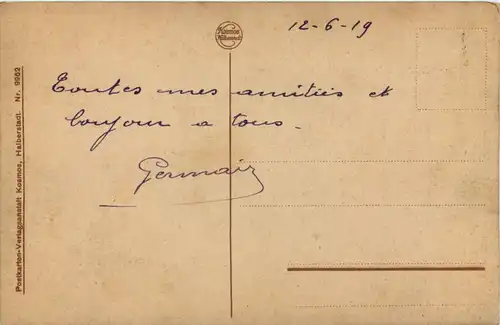 Kosmos
12-6-19
Toutes mes amitiés et
bonjour a tous.
Germain
Postkarten-Verlagsanstalt Kosmos, Halberstadt. Nr. 9962